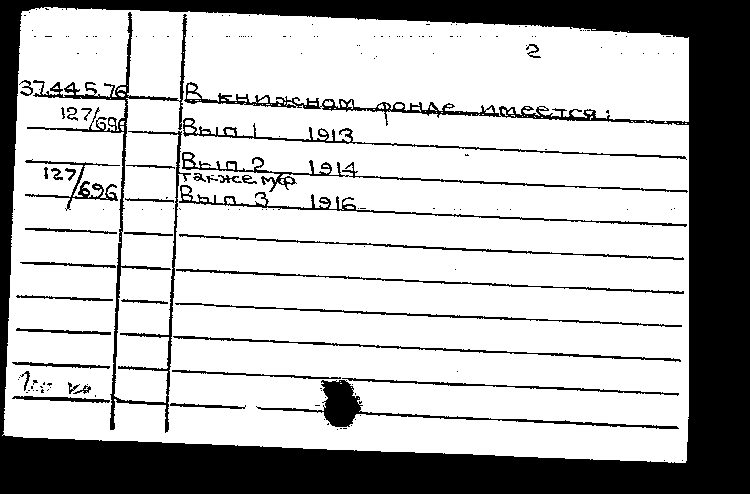 2
37.44.5.76 В книжном фонде имеется:
127/696 Вып 1 1913
Вып. 2 1914
также м/ф
127/696 Вып. 3 1916